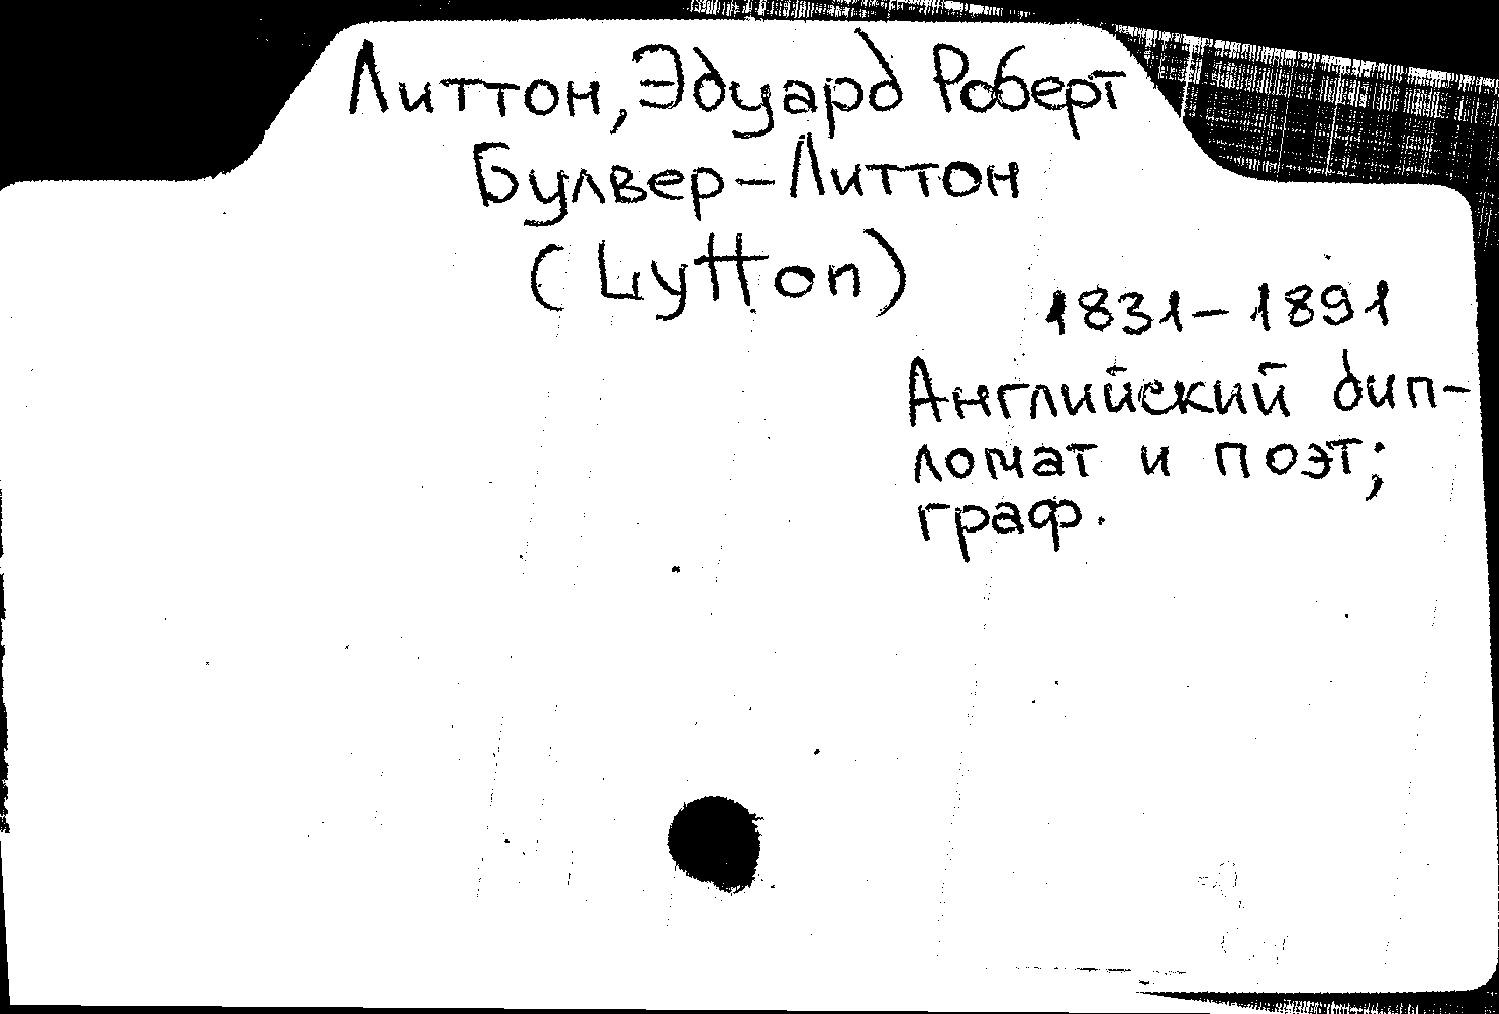 Литтон, Эдуард Роберт
Булвер-Литтон
(Lytton)
1831-1891
Английский дип-
ломат и поэт;
граф.